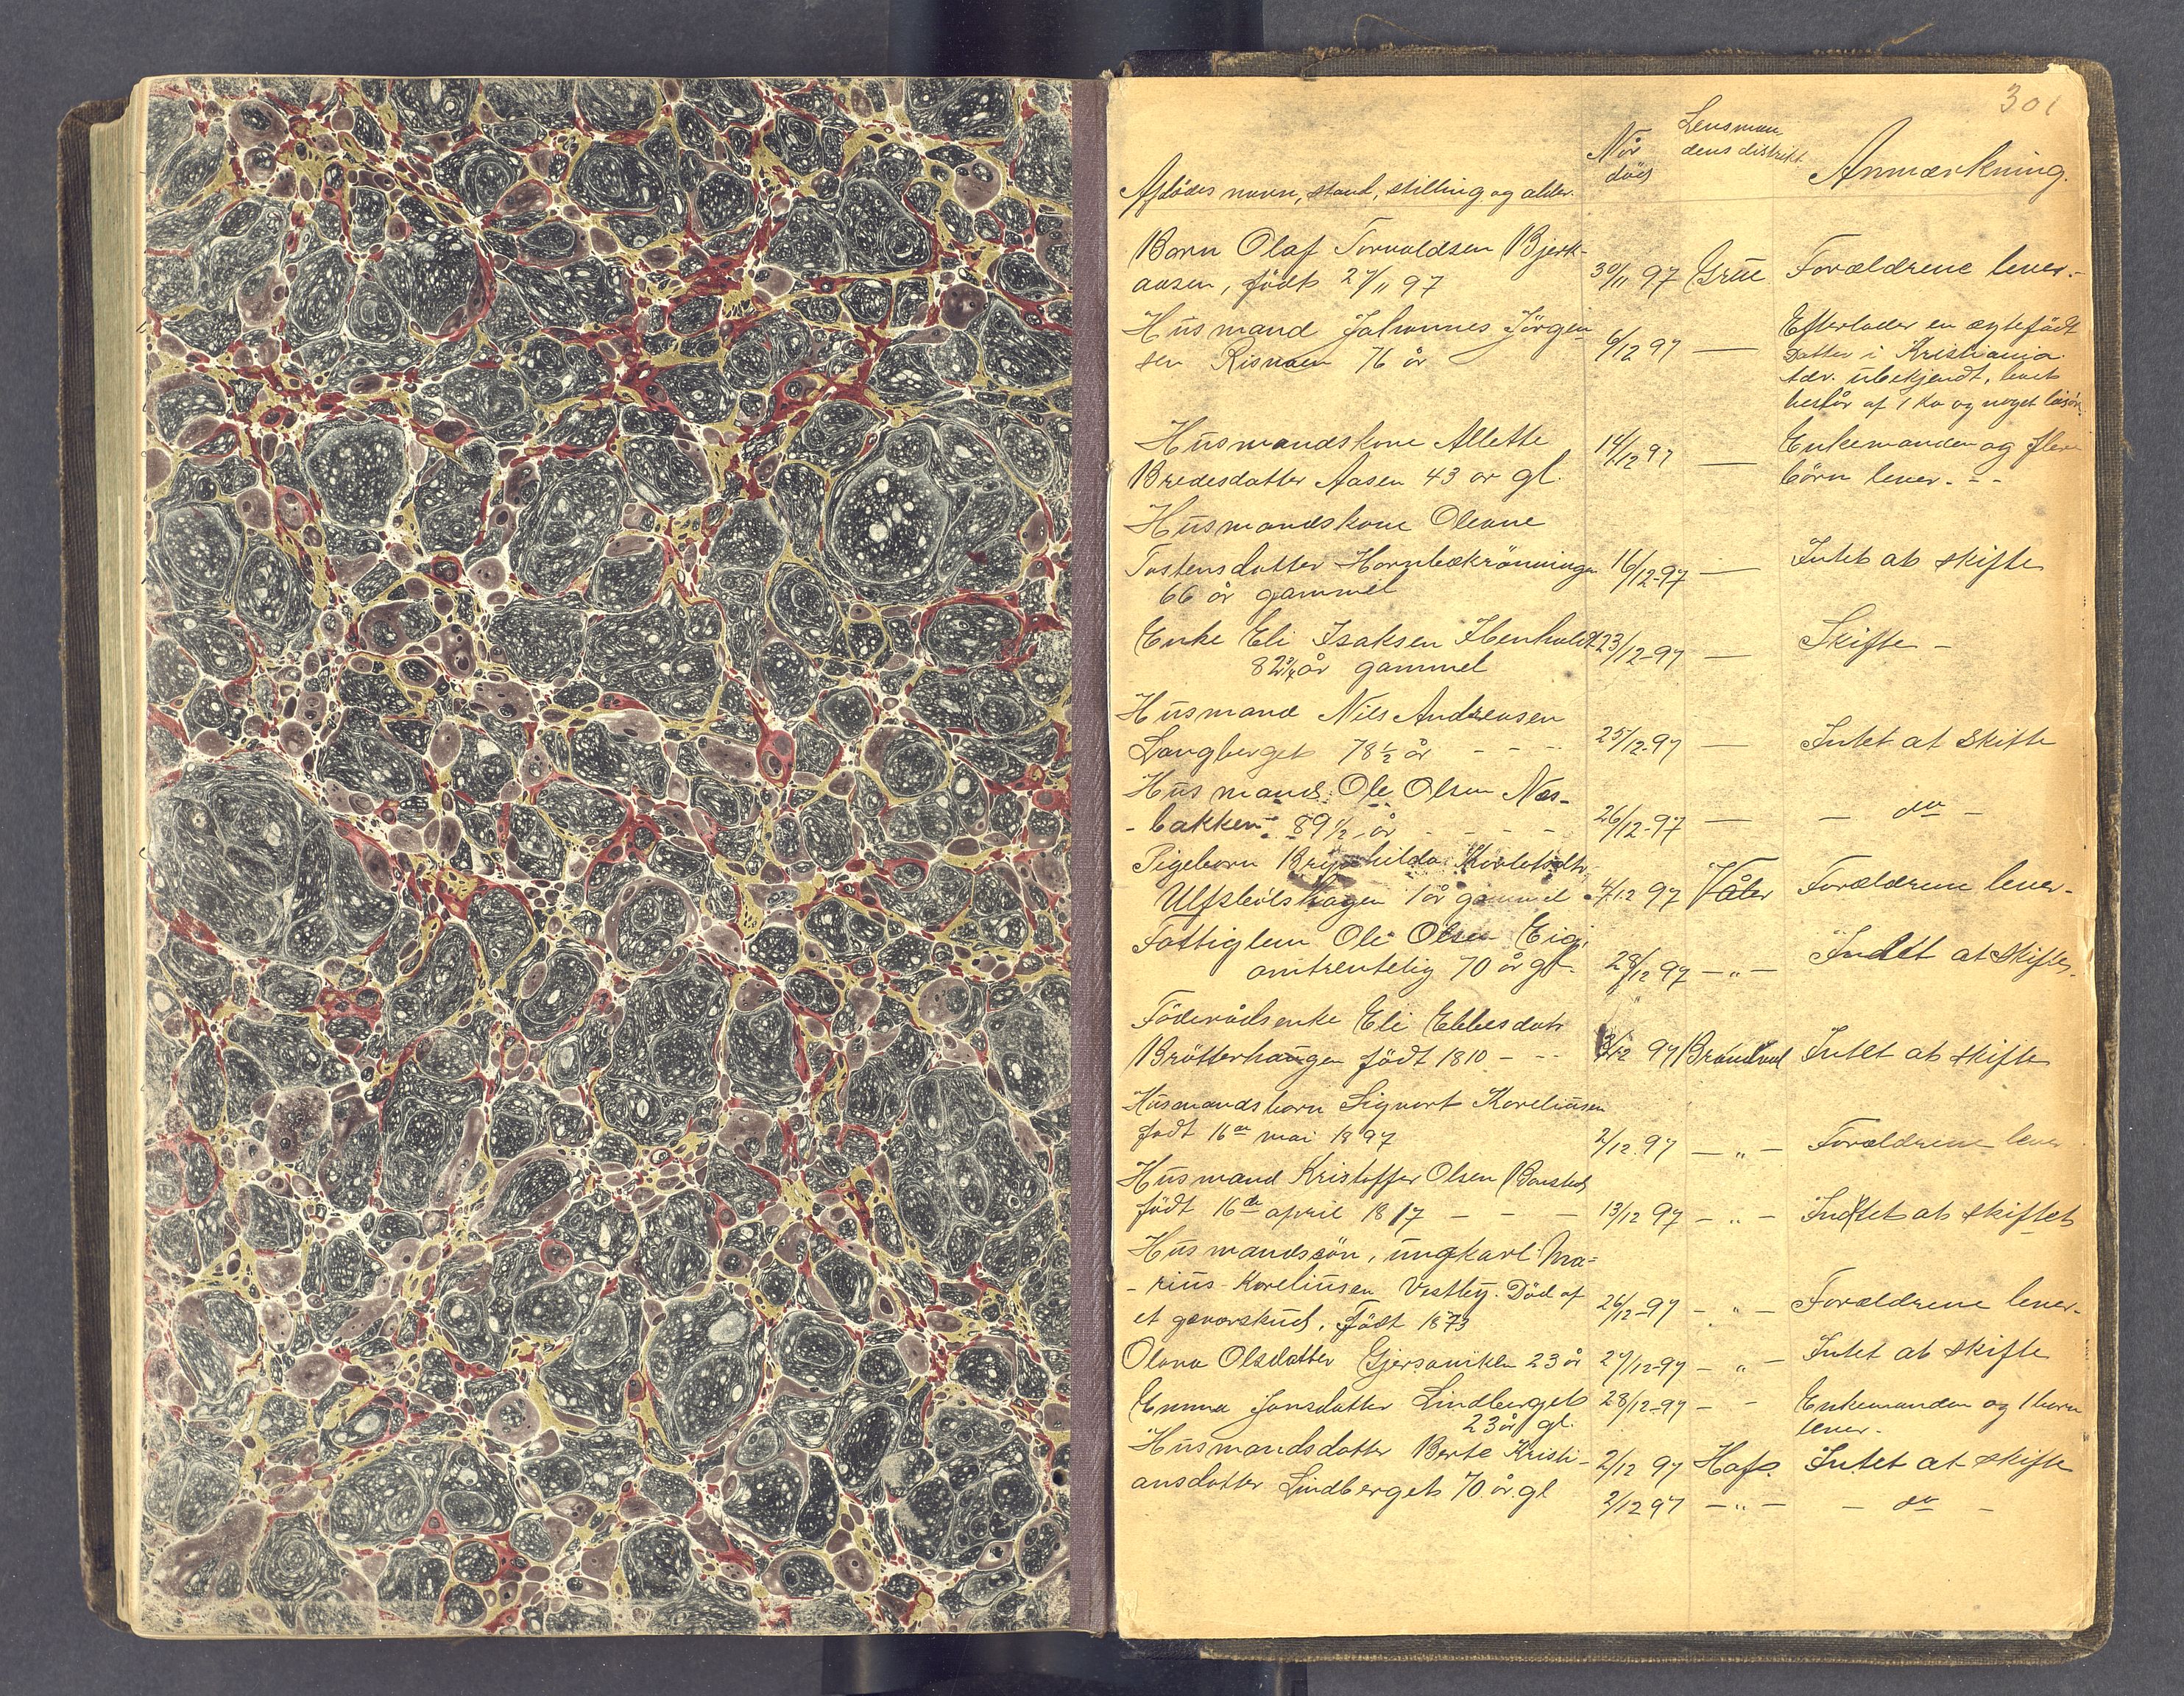 301
Afdødes navn, stand, stilling og alder.
Når død
Lensman-
dens distrikt
Anmærkning.
Barn Olaf Torvaldsen Bjerk-
aasen, født 27/11 97
30/11 97 Grue Forældrene lever.-
Husmand Johannes Jörgen-
sen Rismoen 76 år
6/12 97 —
Efterlader en ægtefødt
Datter i Kristiania
adr. ubekjendt, boet
består af 1 ko og noget løsøre.
Husmandskone Allette
Bredesdatter Aasen 43 år gl.
14/12 97 —
Enkemanden og flere
børn lever. - -
Husmandskone Oleane
Tostensdatter Hornbækrönningen
66 år gammel
16/12-97 — Intet at skifte
Enke Eli Isaksen Ibenholdt
82 3/4 år gammel
23/12-97 — Skifte -
Husmand Nils Andreasen
Langberget 78 1/2 år - - -
25/12-97 — Intet at skifte
Husmand Ole Olsen Næs-
- bakken 89 1/2 år - - - -
26/12-97 — — do -
Pigebarn
Ulfsbölshagen 1 år gammel
4/12 97 Våler Forældrene lever-
Fattiglem Ole Olsen Eid,
omtrentelig 70 år gl.
28/12 97 — „ — Indtet at skiftes.
Föderådsenke Eli Ebbesdatr
Brötterhaugen født 1810 - - -
3/12 97 Brandval Intet at skifte
Husmandsbarn Sigvart Koreliusen
født 16de mai 1897
2/12 97 — „ — Forældrene lever
Husmand Kristoffer Olsen Baastad
født 16de april 1817 - - -
13/12 97 - „ - Indtet at skiftet
Husmandssön, ungkarl Ma-
- rius Koreliusen Vestby. Död af
et geværskud. Født 1873
26/12-97 - „ - Forældrene lever-
Olava Olsdatter Gjersøviken 23 år
27/12-97 - „ - Intet at skifte
Emma Jonsdatter Lindberget
23 år gl.
28/12-97 - - Enkemanden og 1 barn
lever.
Husmandsdatter Berte Kristi-
ansdatter Lindberget 70 år gl
2/12 97 Hofs. Intet at skifte
2/12 97 — „ — — do —